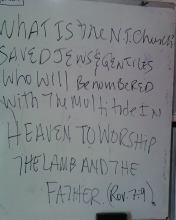 WHAT IS the N.T. Church
SAVED JEWS & GENTILES
Who Will Be numbered
With The Multitude In
HEAVEN TO WORSHIP
THE LAMB AND THE
FATHER. (Rev. 7:9)